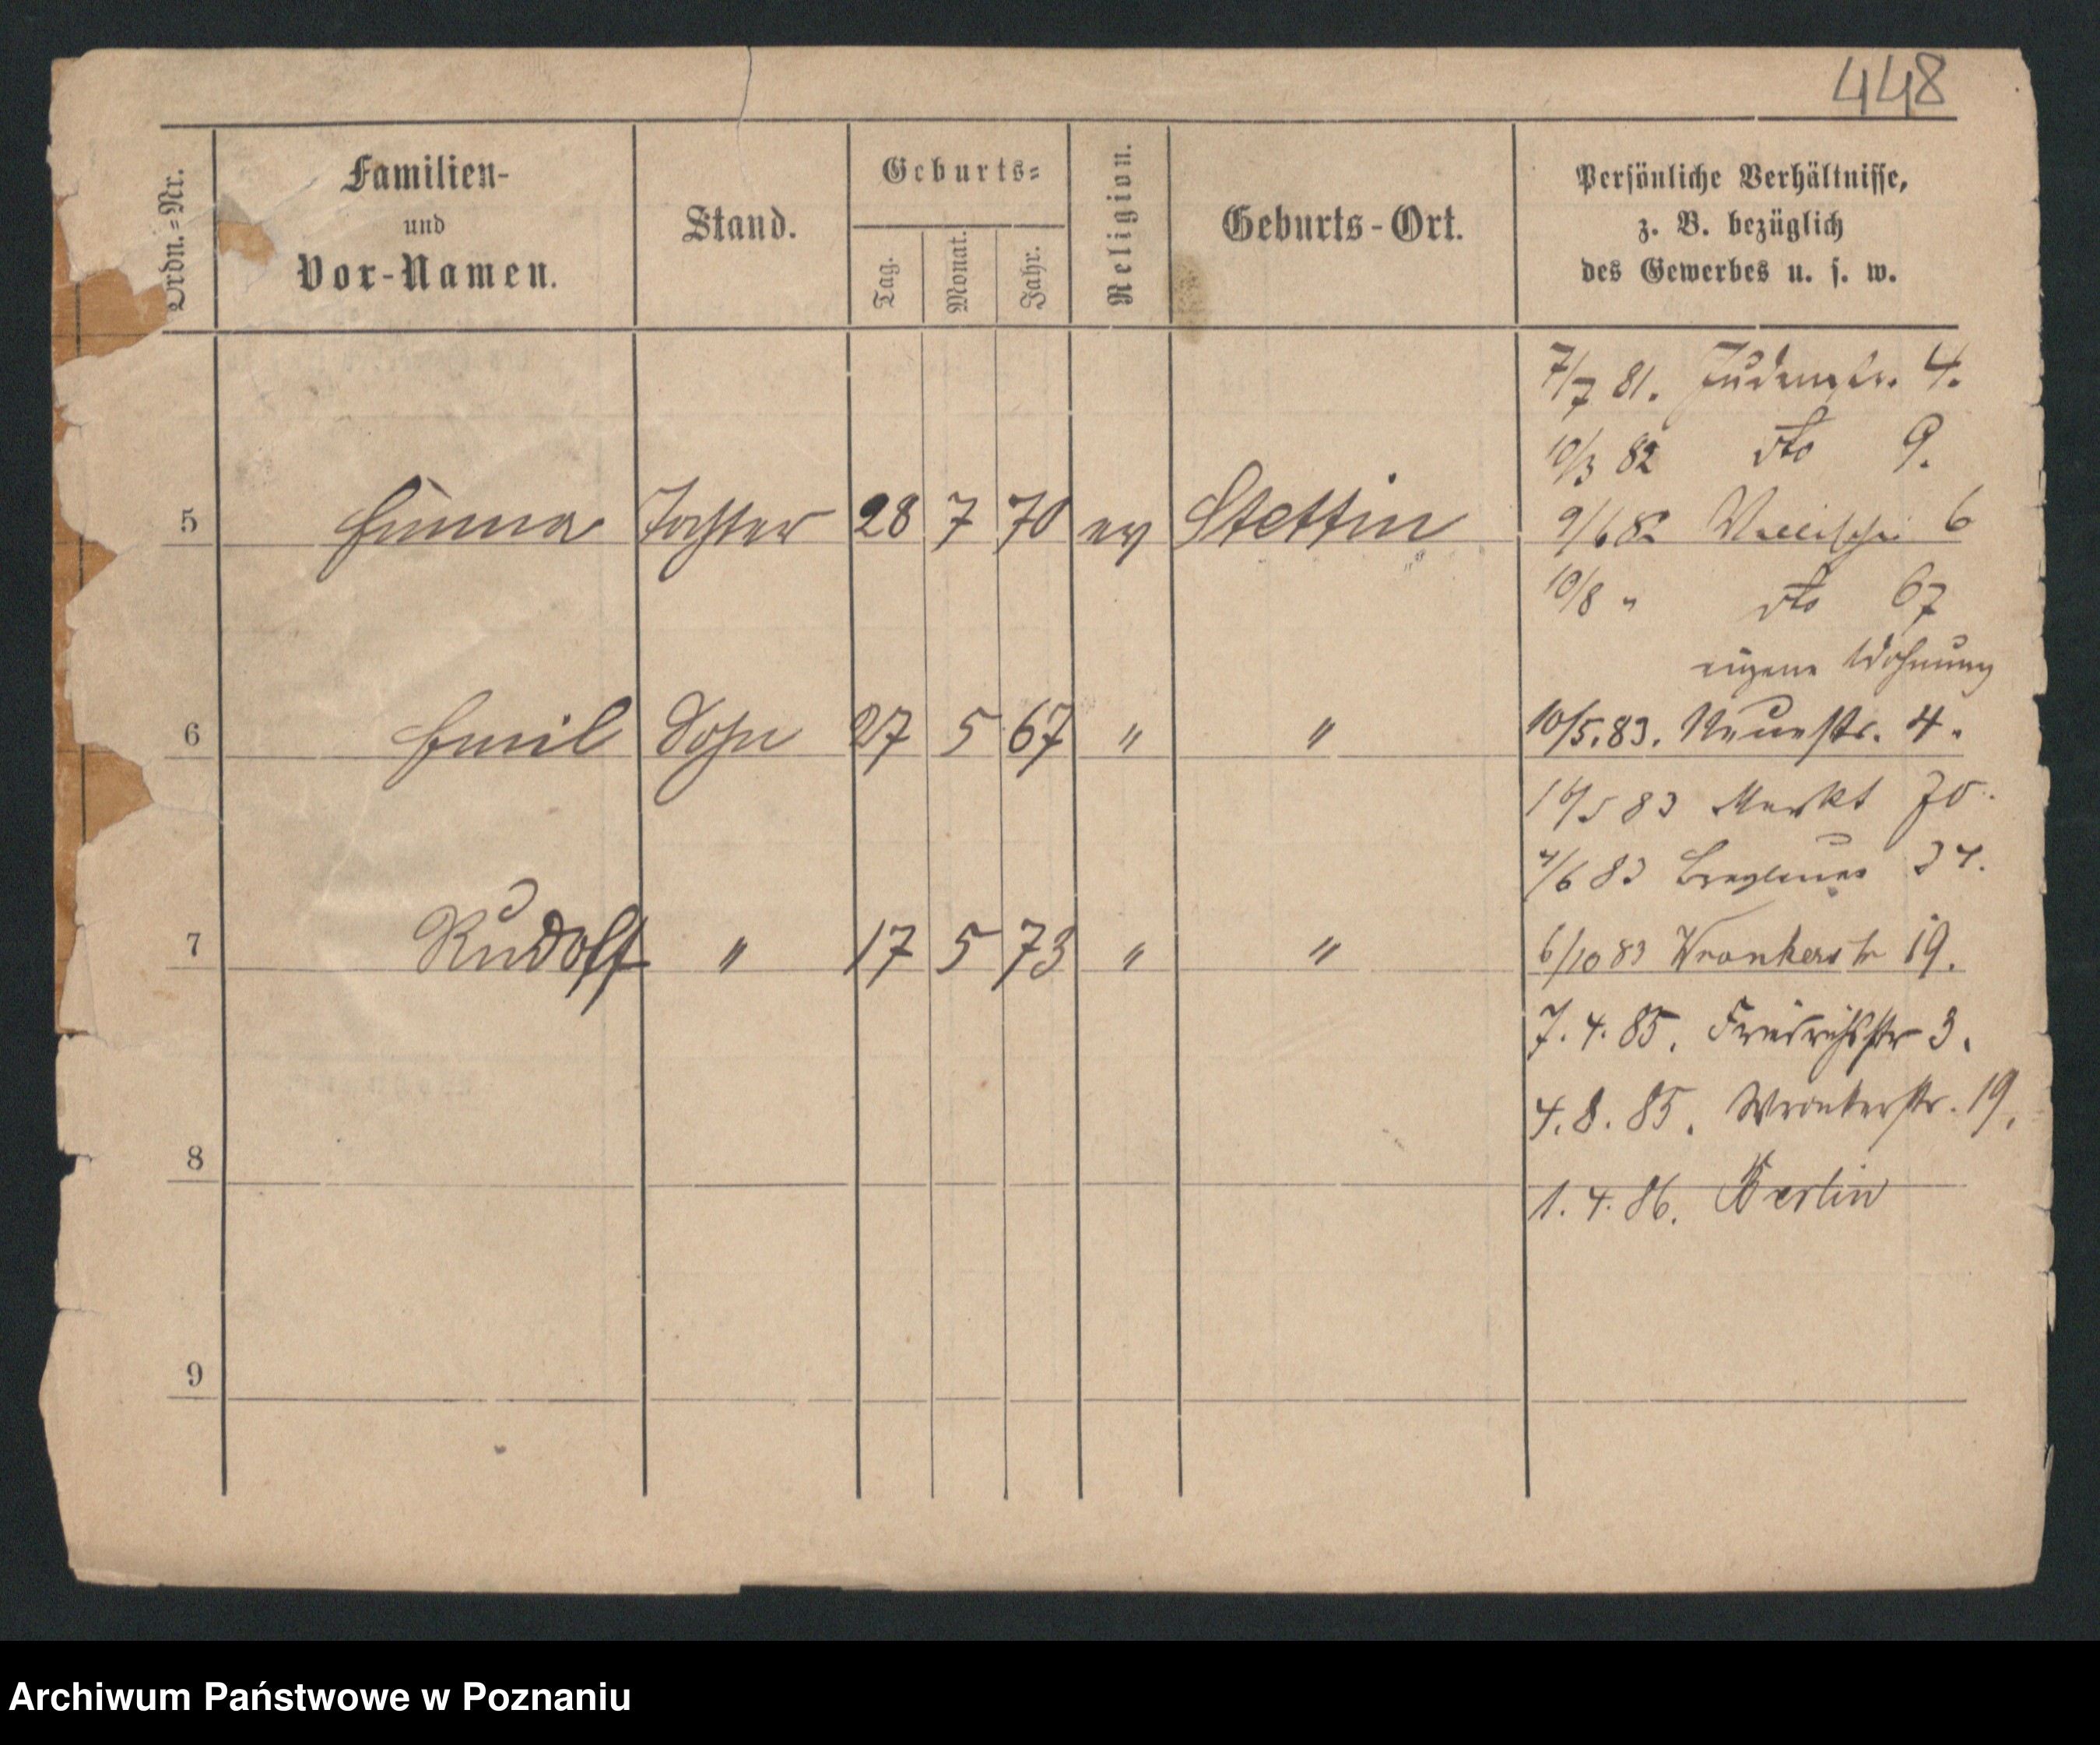 448
Ordn.=Nr.
Familien-
und
Vor-Namen.
Stand.
Geburts=
Tag.
Monat.
Jahr.
Religion.
Geburts-Ort.
Persönliche Verhältnisse,
z. B. bezüglich
des Gewerbes u. s. w.
7/7 81. Judenstr. 4.
10/3 82 dto 9.
5 Emma Tochter 28 7 70 ev Stettin
9/6 82 Wallischei 6
10/8 " dto 67
eigene Wohnung
6 Emil Sohn 27 5 67 " "
10/5.83. Neuestr. 4.
16/5 83 Markt 70.
4/6 83 34.
7 Rudolf " 17 5 73 " "
6/10 83 Wronkerstr 19.
7. 4. 85. Friedrichsstr 3.
4. 8. 85. Wronkerstr. 19.
8
1. 4. 86. Berlin
9
Archiwum Państwowe w Poznaniu